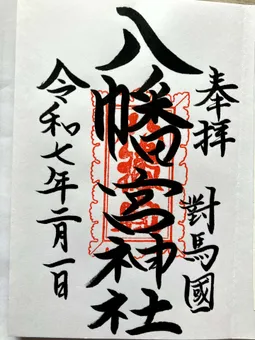 奉拝
對馬國
八幡宮神社
令和七年二月一日